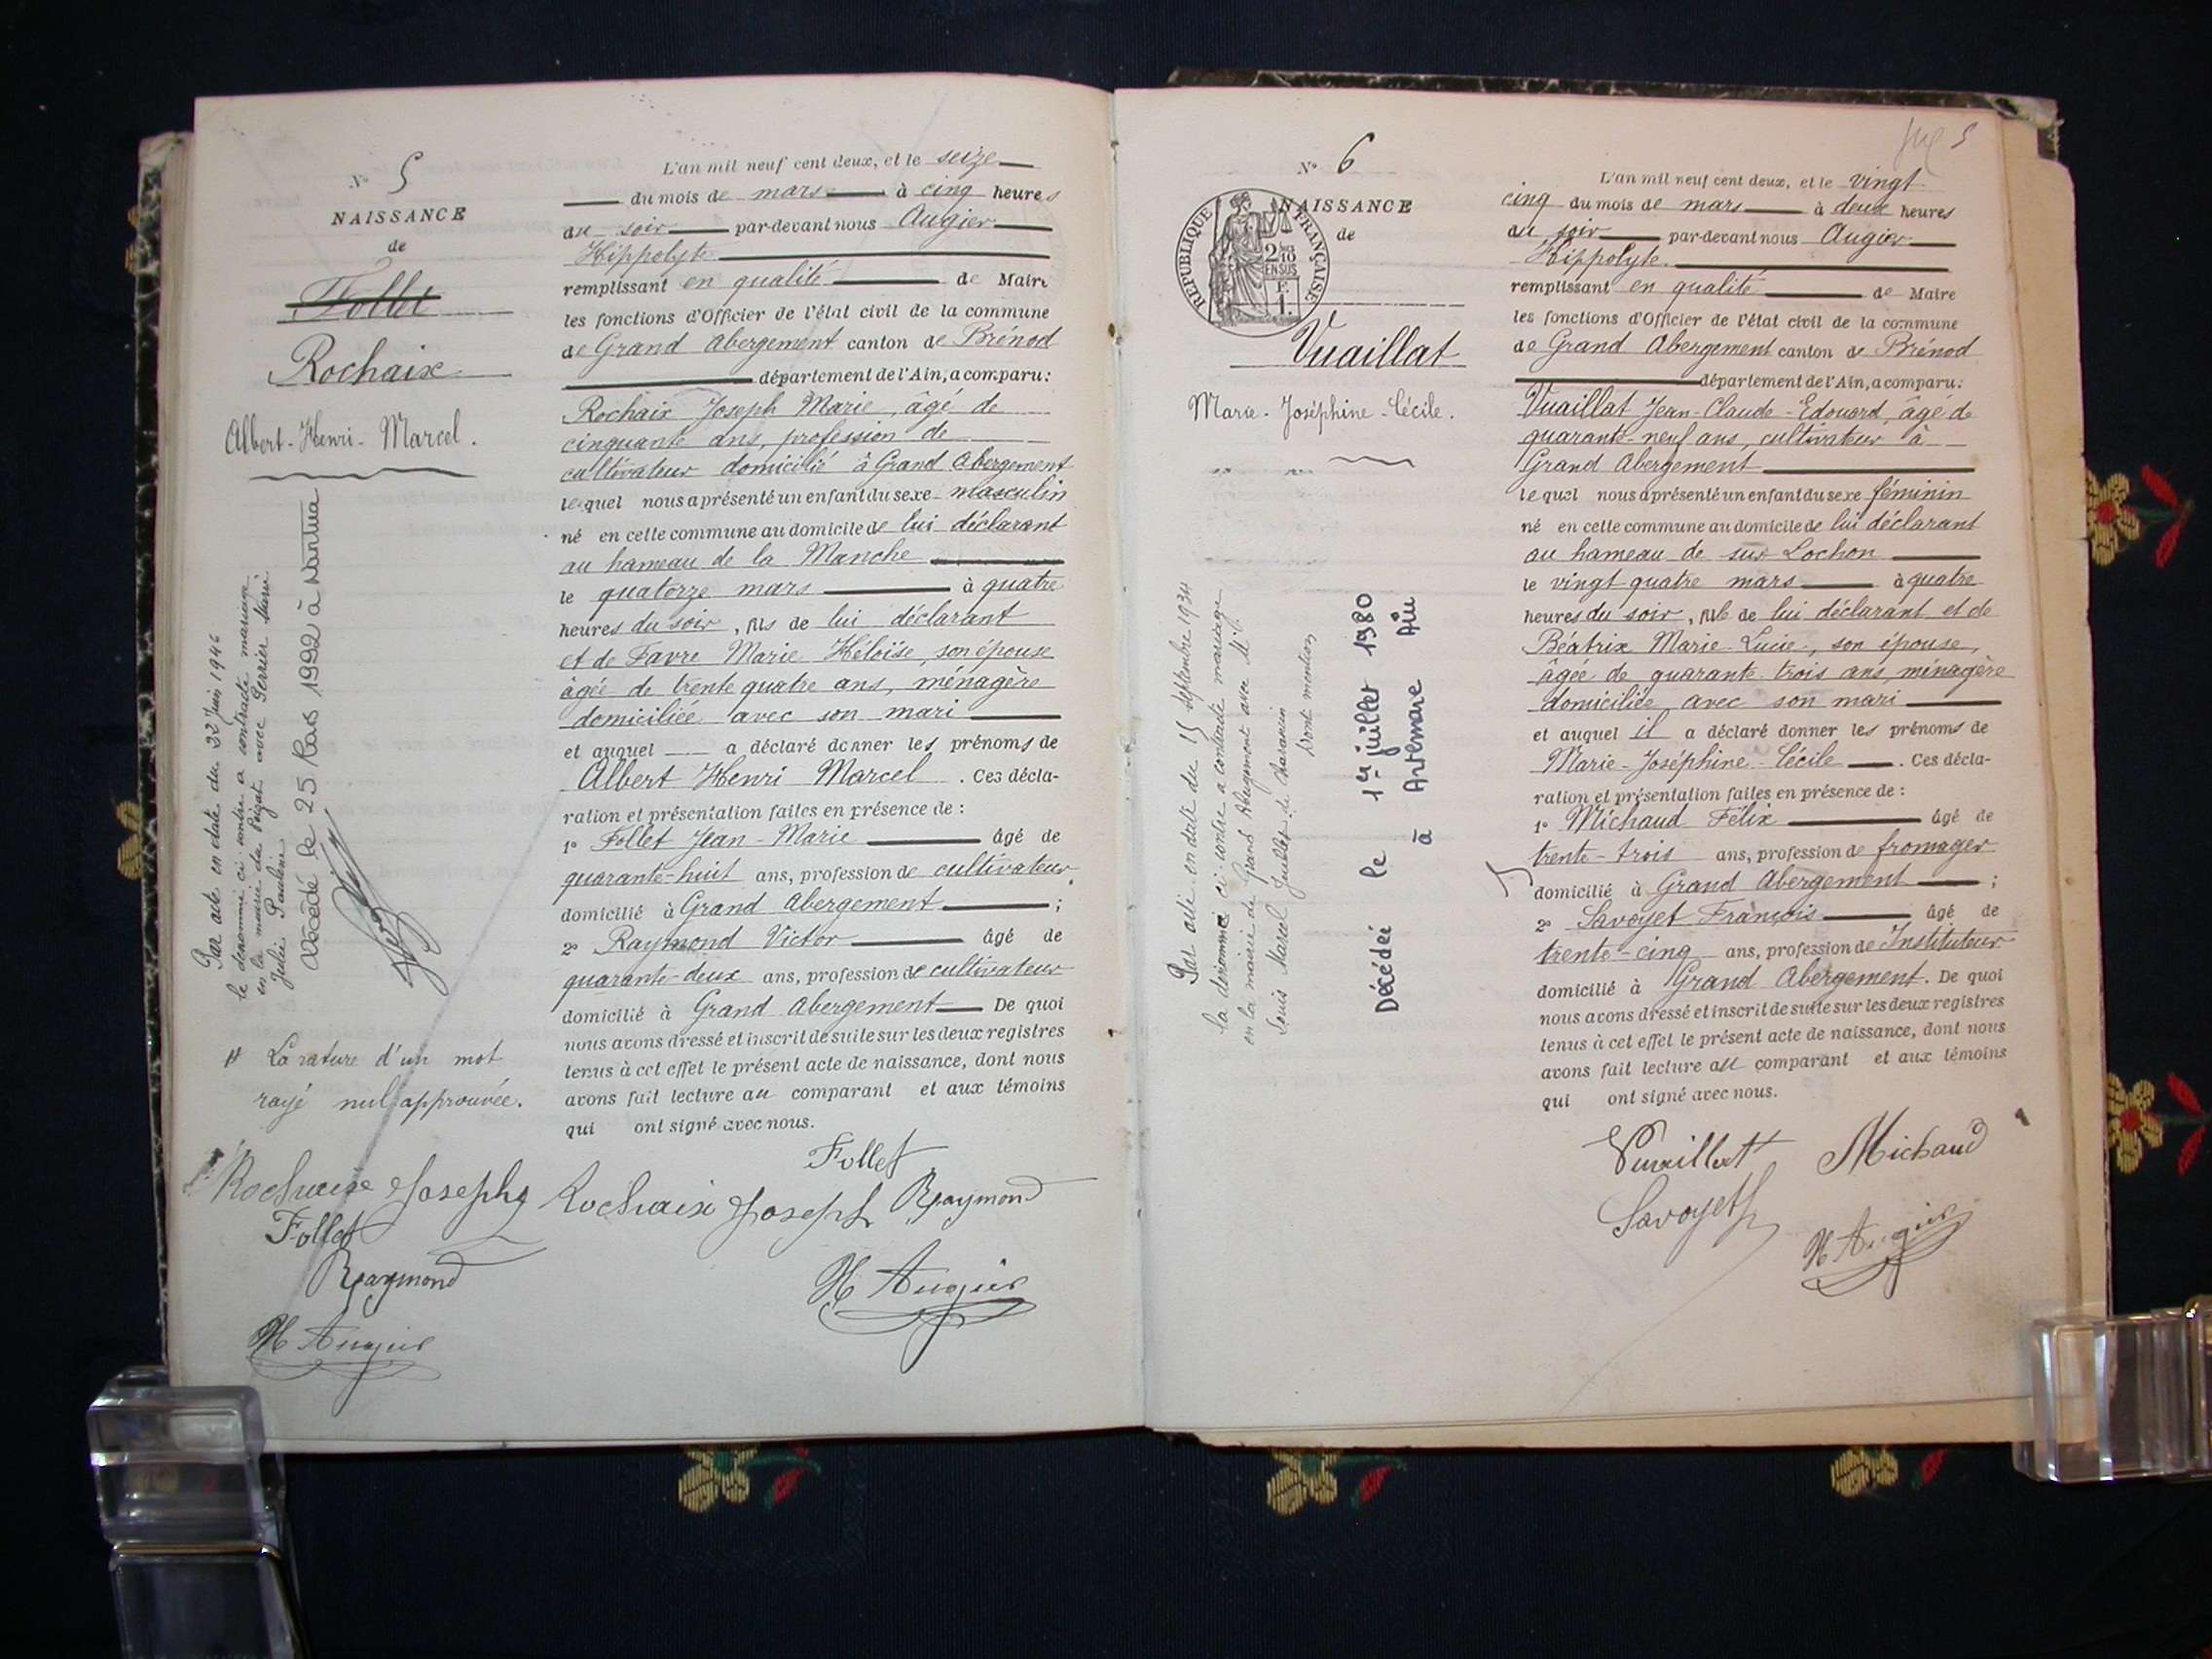 N° 5
NAISSANCE
de
Follet
Rochaix
Albert-Henri-Marcel.
Par acte en date du 22 Juin 1946
le dénommé ci contre a contracté mariage
en la mairie de avec
Julie Pauline
Décédé le 25 Mars 1992 à Nantua
La rature d'un mot
rayé nul approuvée.
Rochaix Joseph
Follet
Raymond
H Augier
L'an mil neuf cent deux, et le seize
du mois de mars à cinq heures
du soir par-devant nous Augier
Hippolyte
remplissant en qualité de Maire
les fonctions d'Officier de l'état civil de la commune
de Grand Abergement canton de Brénod
département de l'Ain, a comparu:
Rochaix Joseph Marie, âgé de
cinquante ans, profession de
cultivateur domicilié à Grand Abergement
lequel nous a présenté un enfant du sexe masculin
né en cette commune au domicile de lui déclarant
au hameau de la Manche
le quatorze mars à quatre
heures du soir, fils de lui déclarant
et de Favre Marie Héloïse, son épouse
âgée de trente quatre ans, ménagère
domiciliée avec son mari
et auquel a déclaré donner les prénoms de
Albert Henri Marcel. Ces décla-
ration et présentation faites en présence de :
1° Follet Jean-Marie âgé de
quarante-huit ans, profession de cultivateur
domicilié à Grand Abergement ;
2° Raymond Victor âgé de
quarante-deux ans, profession de cultivateur
domicilié à Grand Abergement De quoi
nous avons dressé et inscrit de suite sur les deux registres
tenus à cet effet le présent acte de naissance, dont nous
avons fait lecture au comparant et aux témoins
qui ont signé avec nous.
Follet
Rochaix Joseph Raymond
H Augier
5
N° 6
REPUBLIQUE FRANÇAISE
2/10 EN SUS
F. 1.
NAISSANCE
de
Vuaillat
Marie-Joséphine-Cécile.
Par acte en date du 15 septembre 1934
la dénommée ci-contre a contracté mariage
en la mairie de Grand Abergement avec M.
Louis Marcel de
Dont mention
Décédée le 1er juillet 1980
à Artemare Ain
L'an mil neuf cent deux, et le vingt
cinq du mois de mars à deux heures
du soir par-devant nous Augier
Hippolyte.
remplissant en qualité de Maire
les fonctions d'Officier de l'état civil de la commune
de Grand Abergement canton de Brénod
département de l'Ain, a comparu:
Vuaillat Jean-Claude-Edouard, âgé de
quarante-neuf ans, cultivateur à
Grand Abergement
lequel nous a présenté un enfant du sexe féminin
né en cette commune au domicile de lui déclarant
au hameau de sur Lochon
le vingt quatre mars à quatre
heures du soir, fille de lui déclarant et de
Béatrix Marie-Lucie, son épouse,
âgée de quarante trois ans, ménagère
domiciliée avec son mari
et auquel il a déclaré donner les prénoms de
Marie-Joséphine-Cécile. Ces décla-
ration et présentation faites en présence de :
1° Michaud Félix âgé de
trente-trois ans, profession de fromager
domicilié à Grand Abergement ;
2° Savoyet François âgé de
trente-cinq ans, profession de Instituteur
domicilié à Grand Abergement. De quoi
nous avons dressé et inscrit de suite sur les deux registres
tenus à cet effet le présent acte de naissance, dont nous
avons fait lecture au comparant et aux témoins
qui ont signé avec nous.
Vuaillat Michaud
Savoyet
H Augier